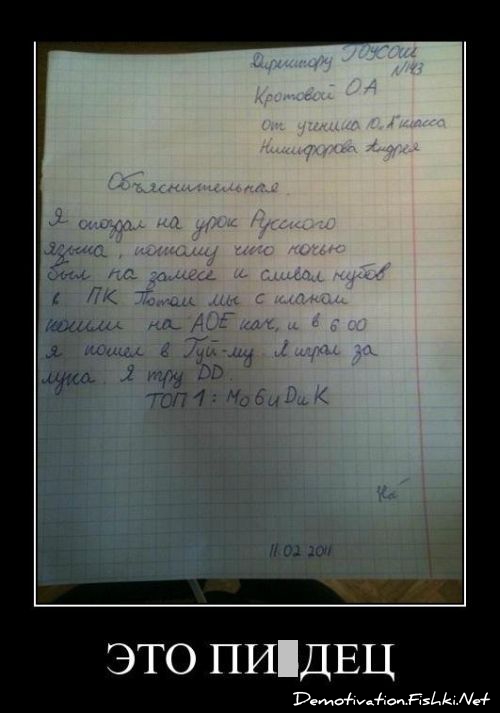 Директору ГОУСОШ
№143
Кротовой О.А
от ученика 10 "А" класса
Никифорова Андрея
Объяснительная.
Я опоздал на урок Русского
языка, потому что ночью
был на замесе и сливал нубов
в ПК Потом мы с кланом
пошли на АОЕ кач, и в 6 00
я пошел в Гуй-му. Я играл за
лука. Я тру DD.
ТОП 1: МоБиДиК
11.02.2011
ЭТО ПИ ДЕЦ
Demotivation.Fishki.Net